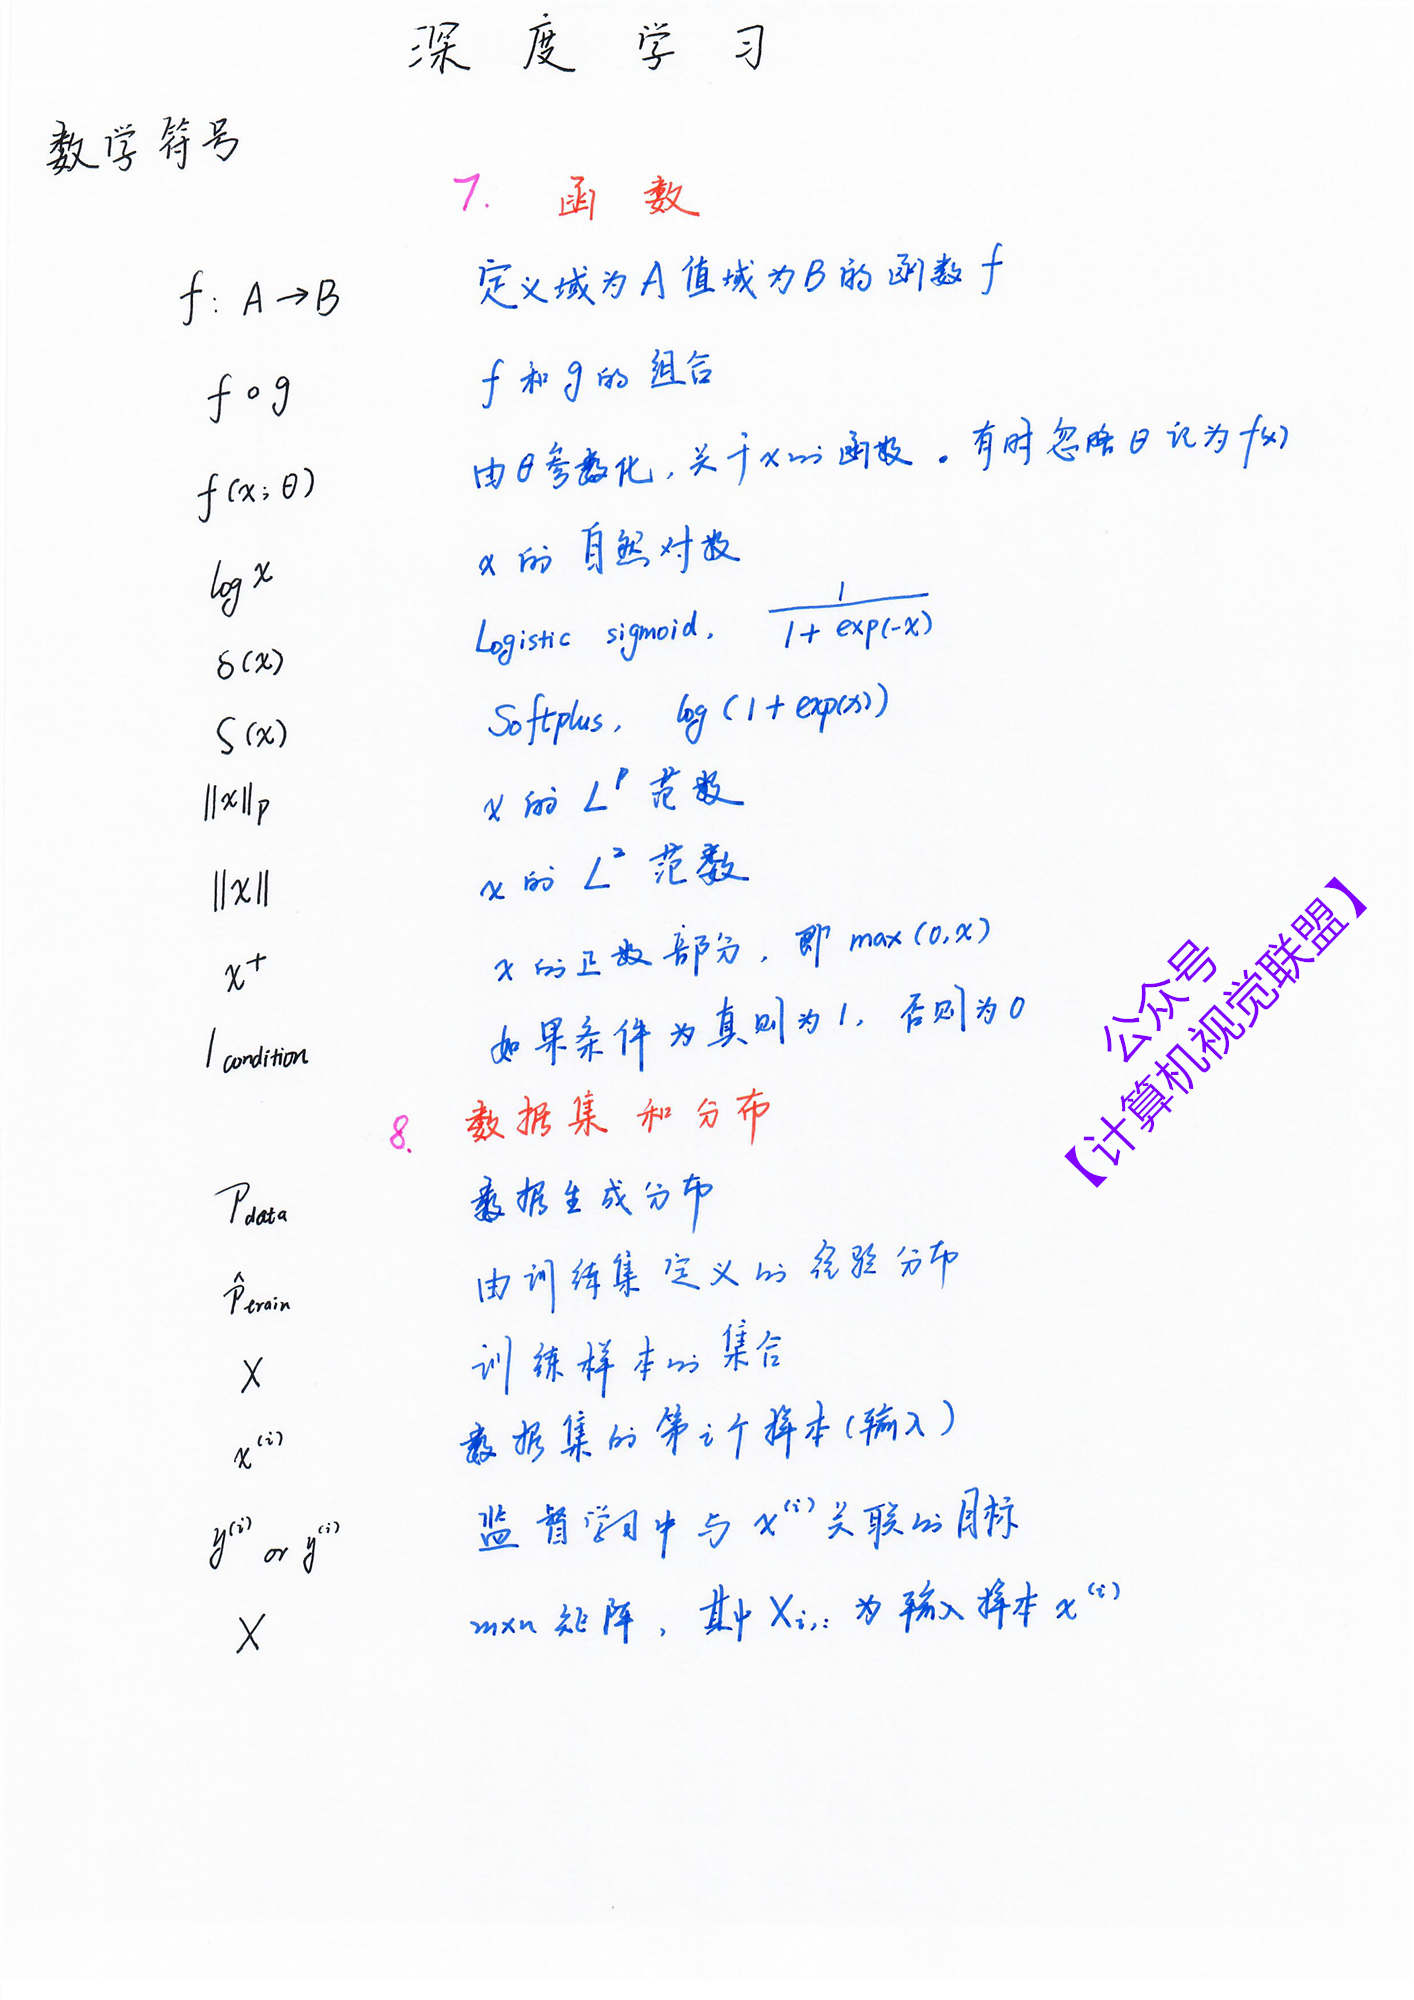 深度学习
数学符号
7. 函数
f: A→B 定义域为A值域为B的函数f
f∘g f和g的组合
f(x;θ) 由θ参数化,关于x的函数。有时忽略θ记为f(x)
log x x的自然对数
δ(x) Logistic sigmoid, 1/(1+exp(-x))
ζ(x) Softplus, log(1+exp(x))
||x||p x的 L^p 范数
||x|| x的 L² 范数
x⁺ x的正数部分,即 max(0,x)
1condition 如果条件为真则为1,否则为0
8. 数据集和分布
Pdata 数据生成分布
p̂train 由训练集定义的经验分布
X 训练样本的集合
x^(i) 数据集的第i个样本(输入)
y^(i) or y^(i) 监督学习中与x^(i)关联的目标
X m×n矩阵,其中Xi,:为输入样本x^(i)
公众号
【计算机视觉联盟】